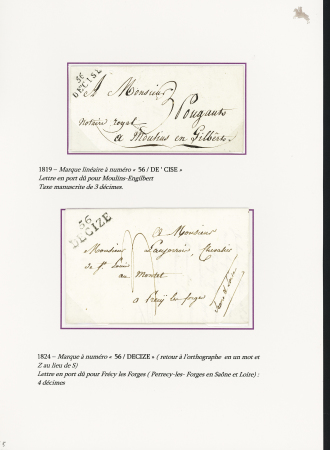 56
DECISE
A Monsieur
3 Pougault
Notaire royal
à Moulins en Gilbert
1819 – Marque linéaire à numéro « 56 / DE ' CISE »
Lettre en port dû pour Moulins-Engilbert
Taxe manuscrite de 3 décimes.
56
DECIZE
A Monsieur
Monsieur Chevalier
de St Louis
au Montet
à Frécy les forges
1824 – Marque à numéro « 56 / DECIZE » ( retour à l'orthographe en un mot et
Z au lieu de S)
Lettre en port dû pour Frécy les Forges ( Perrecy-les- Forges en Saône et Loire) :
4 décimes